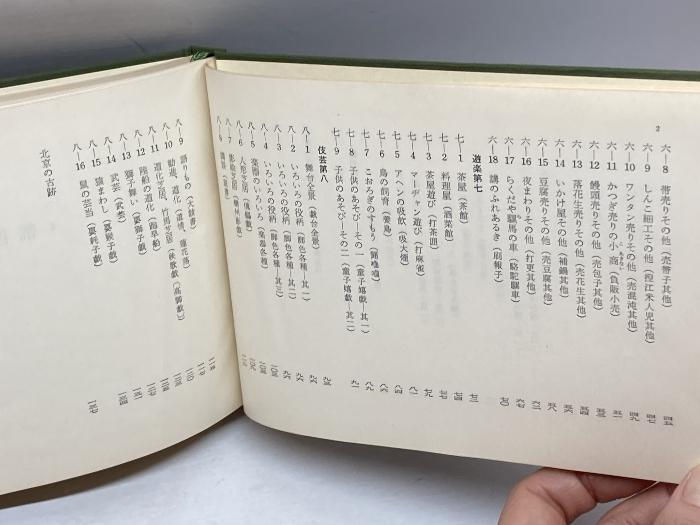 2
六―8 帯売りその他(売帯子其他) 四五
六―9 しんこ細工その他(捏江米人児其他) 四七
六―10 ワンタン売りその他(売混沌其他) 四九
六―11 かつぎ売りの小商(負販小売) 五一
六―12 饅頭売りその他(売包子其他) 五三
六―13 落花生売りその他(売花生其他) 五四
六―14 いかけ屋その他(補鍋其他) 五六
六―15 豆腐売りその他(売豆腐其他) 五八
六―16 夜まわりその他(打更其他) 六二
六―17 らくだや騾馬の車(駱駝騾車) 六七
六―18 講のふれあるき(刷報子) 七〇
遊楽第七
七―1 茶屋(茶館) 七三
七―2 料理屋(酒菜館) 七四
七―3 茶屋遊び(打茶囲) 七七
七―4 マーヂャン遊び(打麻雀) 七九
七―5 アヘンの吸飲(吸大煙) 八一
七―6 鳥の飼育(養鳥) 八四
七―7 こおろぎのすもう(闘蛐蛐) 八六
七―8 子供のあそび―その一(童子嬉戯―其一) 八九
七―9 子供のあそび―その二(童子嬉戯―其二) 九一
伎芸第八
八―1 舞台全景(戯台全景) 九五
八―2 いろいろの役柄(脚色各種―其一) 九六
八―3 いろいろの役柄(脚色各種―其二)
八―4 いろいろの役柄(脚色各種―其三)
八―5 楽器のいろいろ(楽器各種) 一〇三
八―6 人形芝居(傀儡戯)
八―7 影絵芝居(灤州影戯)
八―8 講談
八―9 語りもの(大鼓書)
八―10 勧進、道化(道情、蓮花落)
八―11 道化芝居、竹馬芝居(秧歌戯(高脚戯))
八―12 陸船の道化(跑旱船)
八―13 獅子舞い(耍獅子戯)
八―14 武芸(武芸)
八―15 猿まわし(耍猴子戯)
八―16 鼠の芸当(耍耗子戯)
北京の古跡